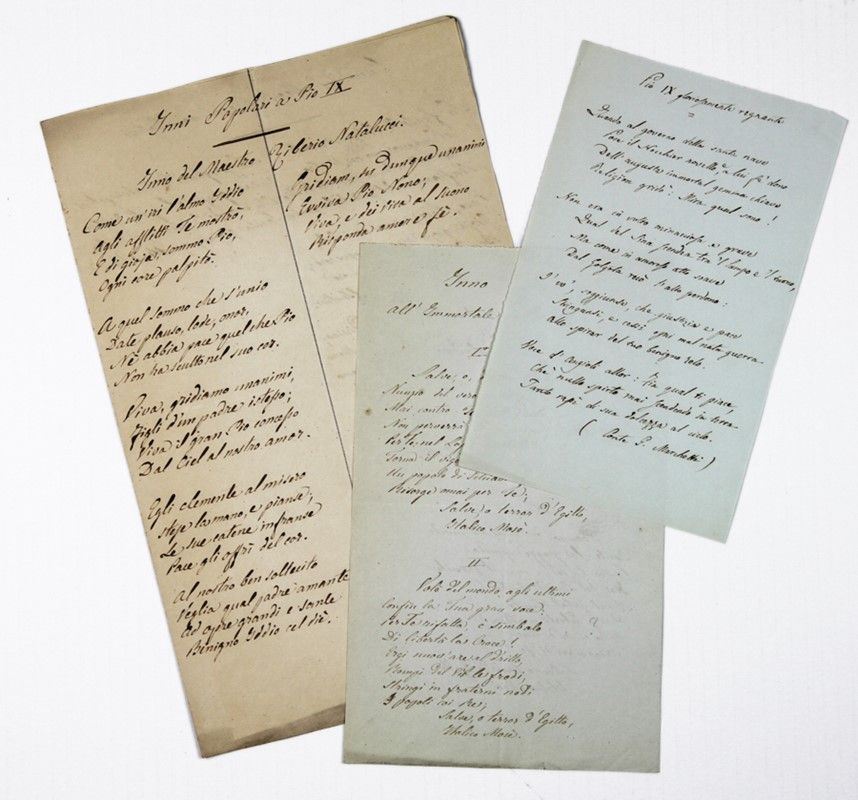 Inni Popolari a Pio IX
Inno del Maestro Tiberio Natalucci.
Come un'iri l'almo Iddio
Agli afflitti Te mostrò,
E di gioja, sommo Pio,
Ogni core palpitò.
A quel sommo che s'unio
Date plauso, lode, onor,
Nè abbia pace quel che Pio
Non ha scultonel suo cor.
Viva, gridiamo unanimi,
Figli d'un padre istesso;
Viva il gran Pio concesso
Dal Ciel al nostro amor.
Egli clemente al misero
Stese la mano, e pianse;
Le sue catene infranse
Pace gli offrì del cor.
Al nostro ben sollecito
Veglia qual padre amante
Ad opre grandi e sante
Benigno Iddio cel diè.
Gridiam, su dunque unanimi
Evviva Pio Nono;
Viva, e dei viva al suono
Risponda amor e fè.
Inno
all' Immortale
I.
Salve, o
Nunzio del ver
Mai contro
Non
Per te nel
Torna il
Un popolo di
Risorge omai per Te;
Salve, o terror d'Egitto,
Italico Mosè.
II.
Vola del mondo agli ultimi
Confin la Tua gran voce:
Per Te rifatta è simbolo
Di libertà la Croce!
Ergi nuov'are al dritto,
Rompi del vil le frodi,
Stringi in fraterni nodi
I popoli coi Re;
Salve, o terror d'Egitto,
Italico Mosè.
Pio IX gloriosamente regnante
Quando al governo della santa nave
Poi il Nocchier novello, a lui fe' dono
Dell' augusta immortal gemina chiave
Religion gridò: Mira qual sono!
Non era in volto minacciosa e grave
Qual del Sina fendea tra il lampo e 'l tuono,
Ma come in amoroso atto soave
Dal Golgota recò ti alto perdono.
I' vo', soggiunse, che giustizia e pace
Stringansi, e cessi ogni mal nata guerra
Allo spirar del tuo benigno zelo.
Voce d' Angioli allor: Pio qual ti piace,
Che nullo spirto mai scendendo in terra
Tanto rapì di sua dolcezza al cielo.
(Conte G. Marchetti)